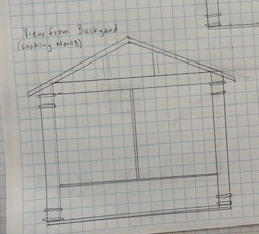 View from Backyard
(Looking North)